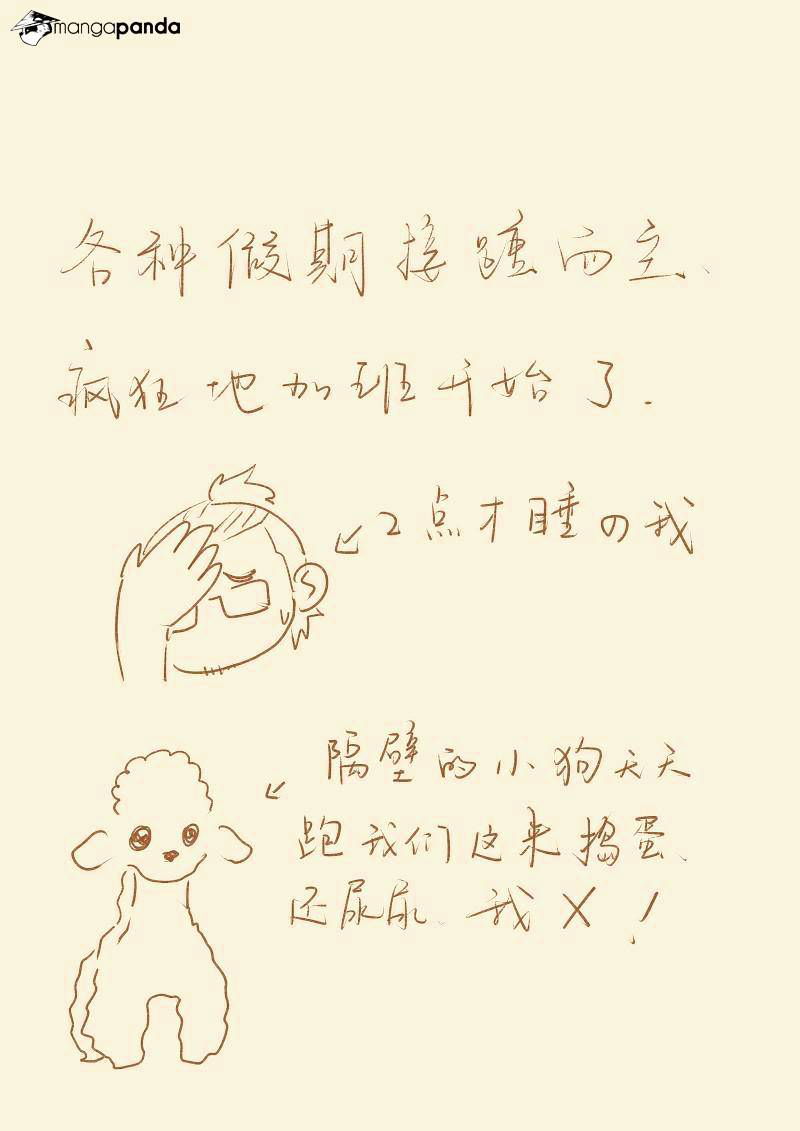 mangapanda
各种假期接踵而至、
疯狂地加班开始了.
2点才睡の我
隔壁的小狗天天
跑我们这来捣蛋、
还尿尿、我X!